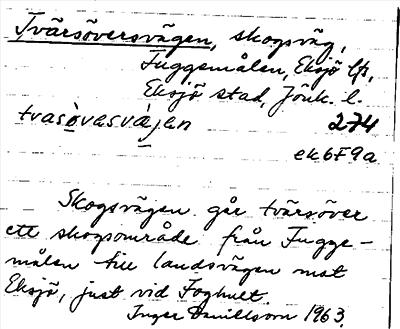 Tvärsöversvägen, skogsväg,
Fuggemålen, Eksjö lfs,
Eksjö stad, Jönk. l.
tvasòvəsvàjən 274
ek6F9a
Skogsvägen går tvärsöver
ett skogsområde från Fugge-
målen till landsvägen mot
Eksjö, just vid Foghult.
Inger Danillsson 1963